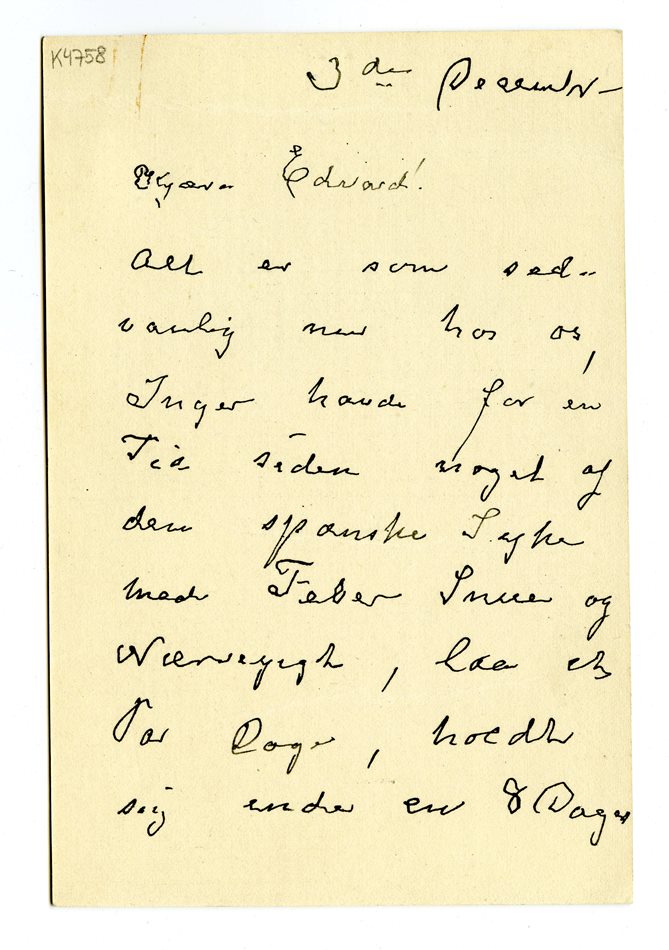 K4758
3die December
Kjære Edvard!
Alt er som sed-
vanlig nu hos os,
Inger havde for en
Tid siden noget af
den spanske Syge
med Feber Snue og
Nærvegigt, laa et
Par Dage, holdt
sig inde en 8 Dages